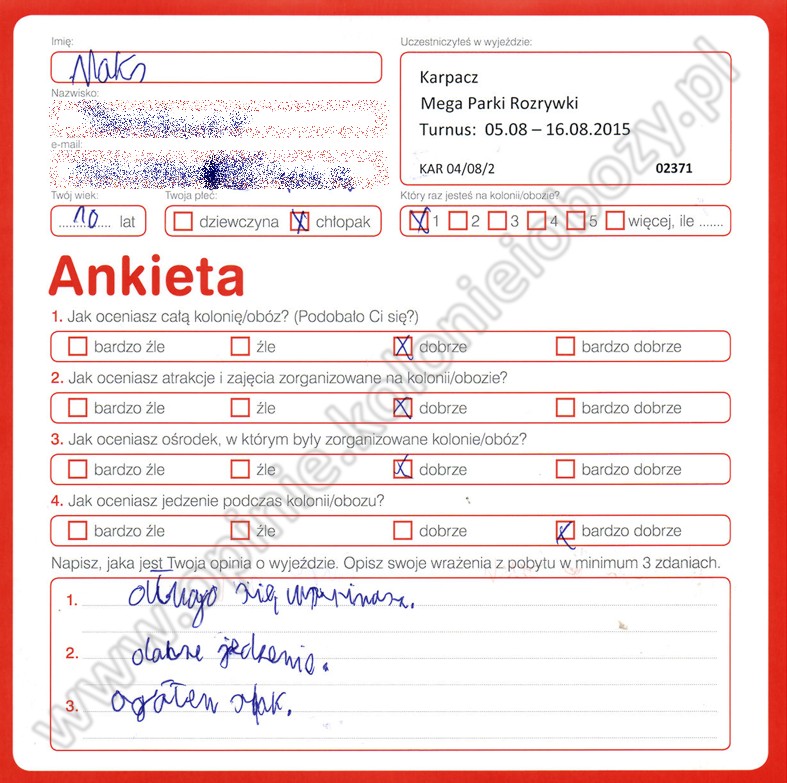 Imię:
Maks
Nazwisko:
e-mail:
Twój wiek:
10 lat
Twoja płeć:
dziewczyna chłopak
Uczestniczyłeś w wyjeździe:
Karpacz
Mega Parki Rozrywki
Turnus: 05.08 – 16.08.2015
KAR 04/08/2 02371
Który raz jesteś na kolonii/obozie?
1 2 3 4 5 więcej, ile .......
Ankieta
1. Jak oceniasz całą kolonię/obóz? (Podobało Ci się?)
bardzo źle źle dobrze bardzo dobrze
2. Jak oceniasz atrakcje i zajęcia zorganizowane na kolonii/obozie?
bardzo źle źle dobrze bardzo dobrze
3. Jak oceniasz ośrodek, w którym były zorganizowane kolonie/obóz?
bardzo źle źle dobrze bardzo dobrze
4. Jak oceniasz jedzenie podczas kolonii/obozu?
bardzo źle źle dobrze bardzo dobrze
Napisz, jaka jest Twoja opinia o wyjeździe. Opisz swoje wrażenia z pobytu w minimum 3 zdaniach.
1. długo się
2. dobre jedzenie.
3.
www.opinie.kolonieiobozy.pl